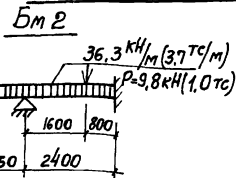 Бм 2
36,3 кН/м (3,7 тс/м)
P=9,8 кН (1,0 тс)
1600 800
50 2400